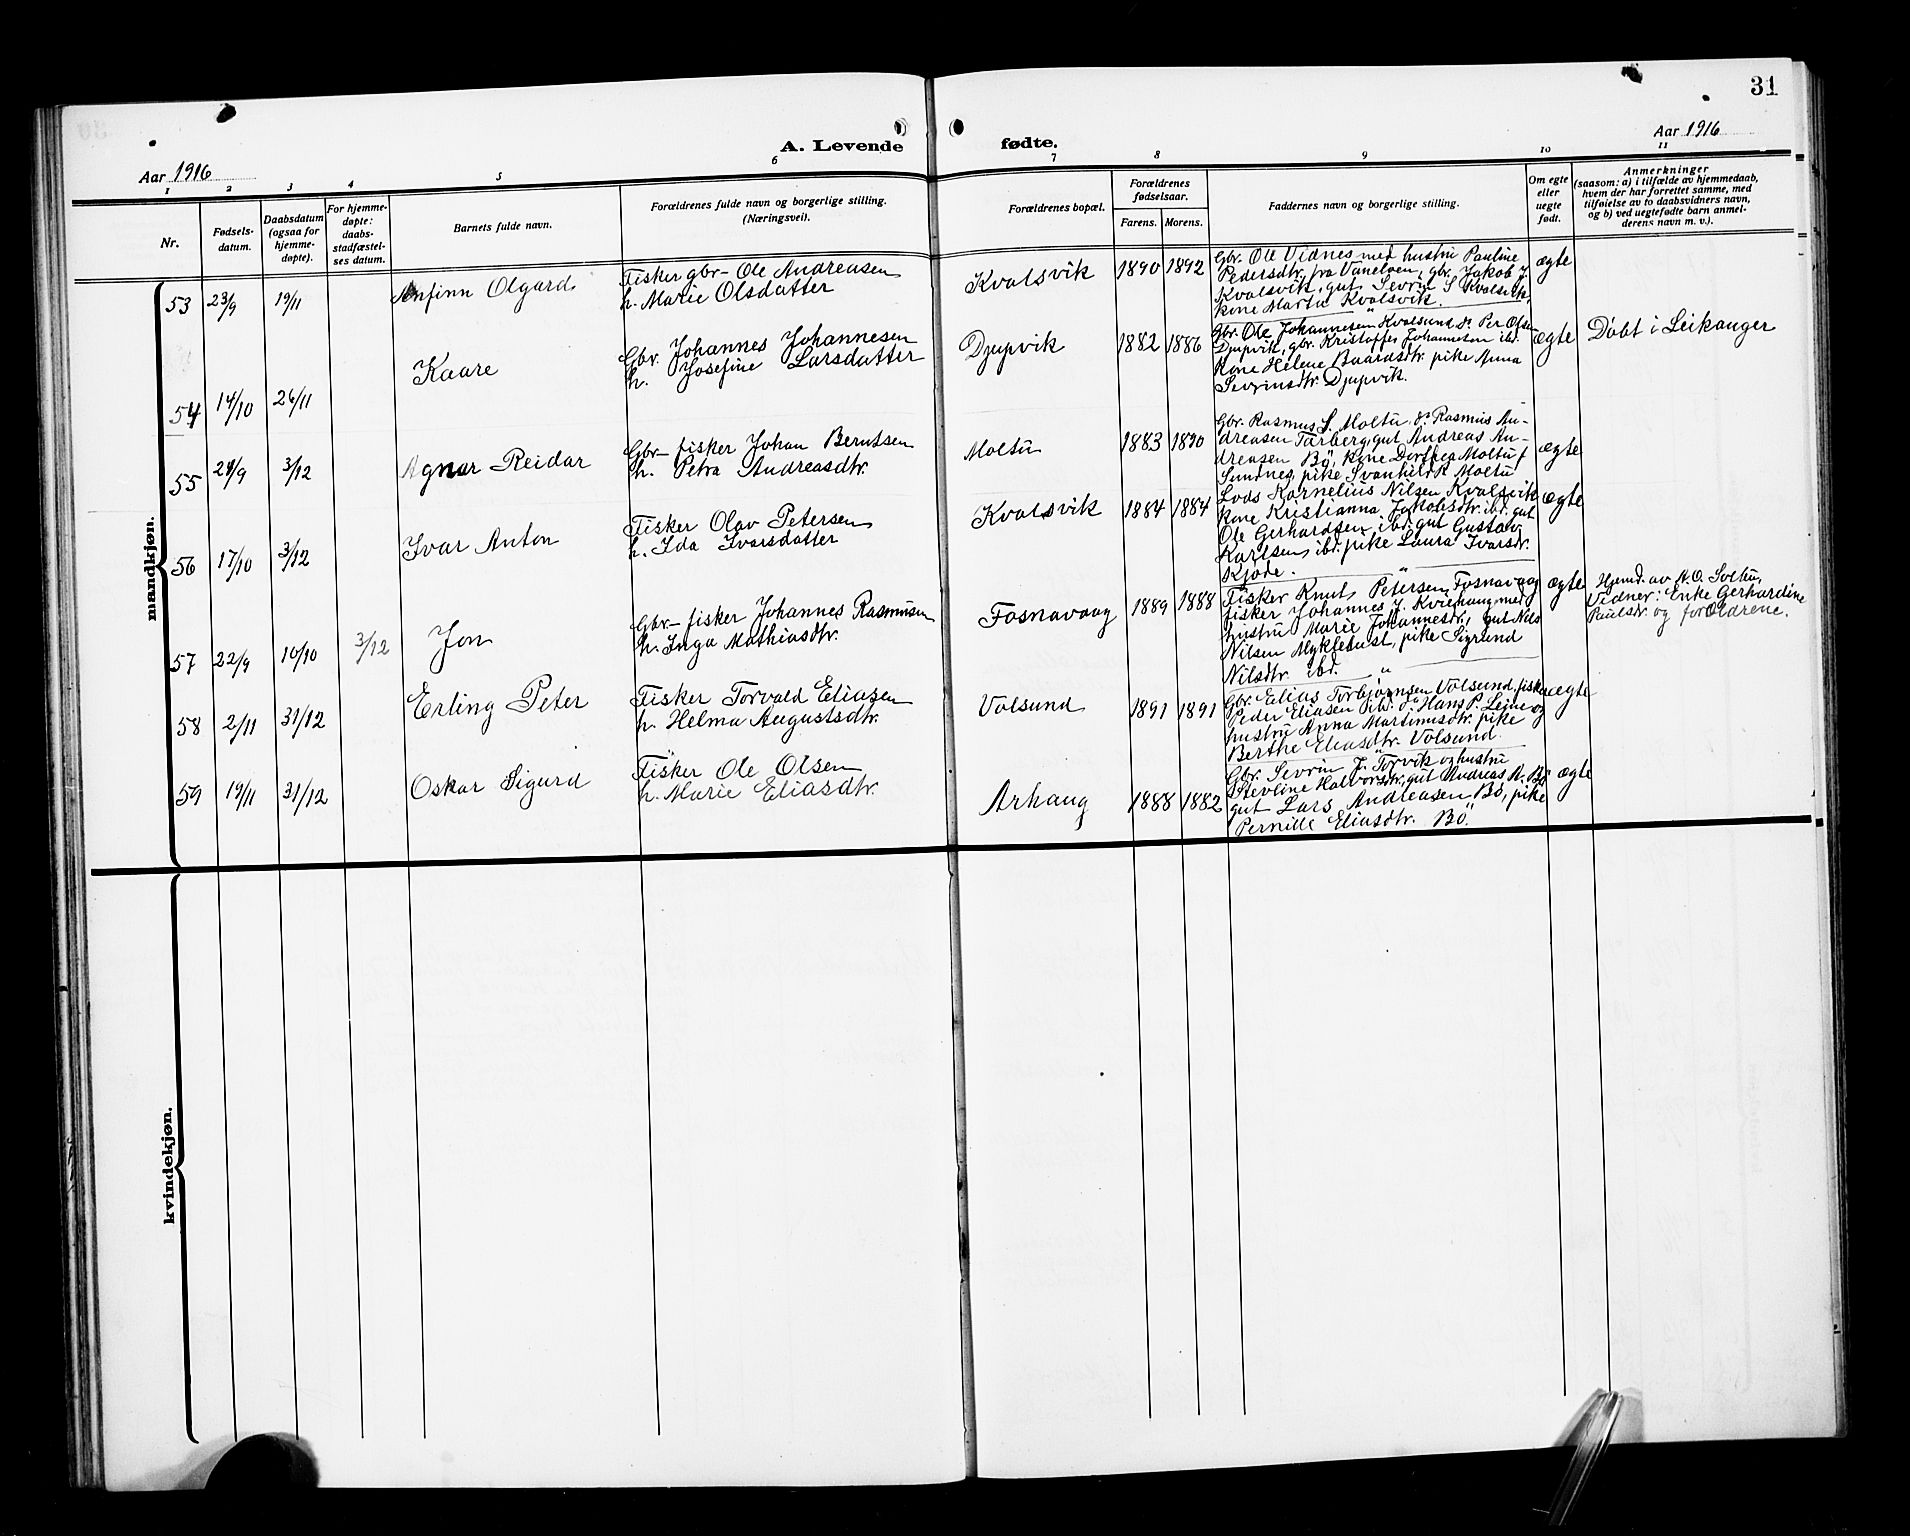 31
A. Levende fødte.
Aar 1916
Aar 1916
1 2 3 4 5 6 7 8 9 10 11
Nr.
Fødsels-
datum.
Daabsdatum
(ogsaa for
hjemme-
døpte).
For hjemme-
døpte:
daabs-
stadfæstel-
ses datum.
Barnets fulde navn.
Forældrenes fulde navn og borgerlige stilling.
(Næringsvei).
Forældrenes bopæl.
Forældrenes
fødselsaar.
Farens. Morens.
Faddernes navn og borgerlige stilling.
Om egte
eller
uegte
født.
Anmerkninger
(saasom: a) i tilfælde av hjemmedaab,
hvem der har forrettet samme, med
tilføielse av to daabsvidners navn,
og b) ved uegtefødte barn anmel-
derens navn m. v.).
mandkjøn.
53 23/9 19/11 Anfinn Olgard
Fisker gbr- Ole Andreasen
h. Marie Olsdatter
Kvalsvik 1890 1892
Gbr. Ole Vidnes med hustru Pauline
Pedersdtr. fra Vanelven, gbr. Jakob J.
Kvalsvik, gut Sevrin S Kvalsvik,
kone Marta Kvalsvik.
ægte
54 14/10 26/11 Kaare
Gbr. Johannes Johannesen
h. Josefine Larsdatter
Djupvik 1882 1886
Gbr. Ole Johannesen Kvalsund, ds Per Olsen
Djupvik, gbr. Kristoffer Johannesen ibd.
Kone Helene Baardsdtr. pike Anna
Sevrinsdtr. Djupvik.
ægte
Döbt i Leikanger
55 29/9 3/12 Agnar Reidar
Gbr- fisker Johan Berntsen
h. Petra Andreasdtr.
Moltu 1883 1890
Gbr. Rasmus S. Moltu, ds Rasmus An-
dreasen Tarberg, gut Andreas An-
dreasen Bö, Kone Dorthea Moltu f
Sundnes, pike Svanhild R Moltu
ægte
56 17/10 3/12 Ivar Anton
Fisker Olav Petersen
h. Ida Ivarsdatter
Kvalsvik 1884 1884
Lods Kornelius Nilsen Kvalsvik
Kone Kristianna Jakobsdtr. ibd. gut
Ole Gerhardsen ibd. gut Gustav
Karlsen ibd. pike Laura Ivarsdr.
Kjöde.
ægte
57 22/9 10/10 3/12 Jon
Gbr- fisker Johannes Rasmusen
h. Inga Mathiasdtr.
Fosnavaag 1889 1888
Fisker Knut Petersen Fosnavaag
fisker Johannes J. Kvienhaug med
hustru Marie Johannesdr., gut Nils
Nilsen Myklebust, pike Sigrund
Nilsdtr. ibd.
ægte
Hjemd. av A. O. Soltu,
Vidner: Enke Gerhardine
Paulsdr. og forældrene.
58 2/11 31/12 Erling Peter
Fisker Torvald Eliasen
h. Helma Augustsdtr.
Volsund 1891 1891
Gbr. Elias Torbjörnsen Volsund, fisker
Peder Eliasen ibd. ds Hans P. Leine og
hustru Anna Martinusdtr. pike
Berthe Eliasdtr. Volsund.
ægte
59 19/11 31/12 Oskar Sigurd
Fisker Ole Olsen
h. Marie Eliasdtr.
Arhaug 1888 1882
Gbr. Sevrin J. Torvik og hustru
Stevline Halvorsdtr, gut Andreas A. Bö
gut Lars Andreasen Bö, pike
Pernille Eliasdtr. Bö.
ægte
kvindekjøn.